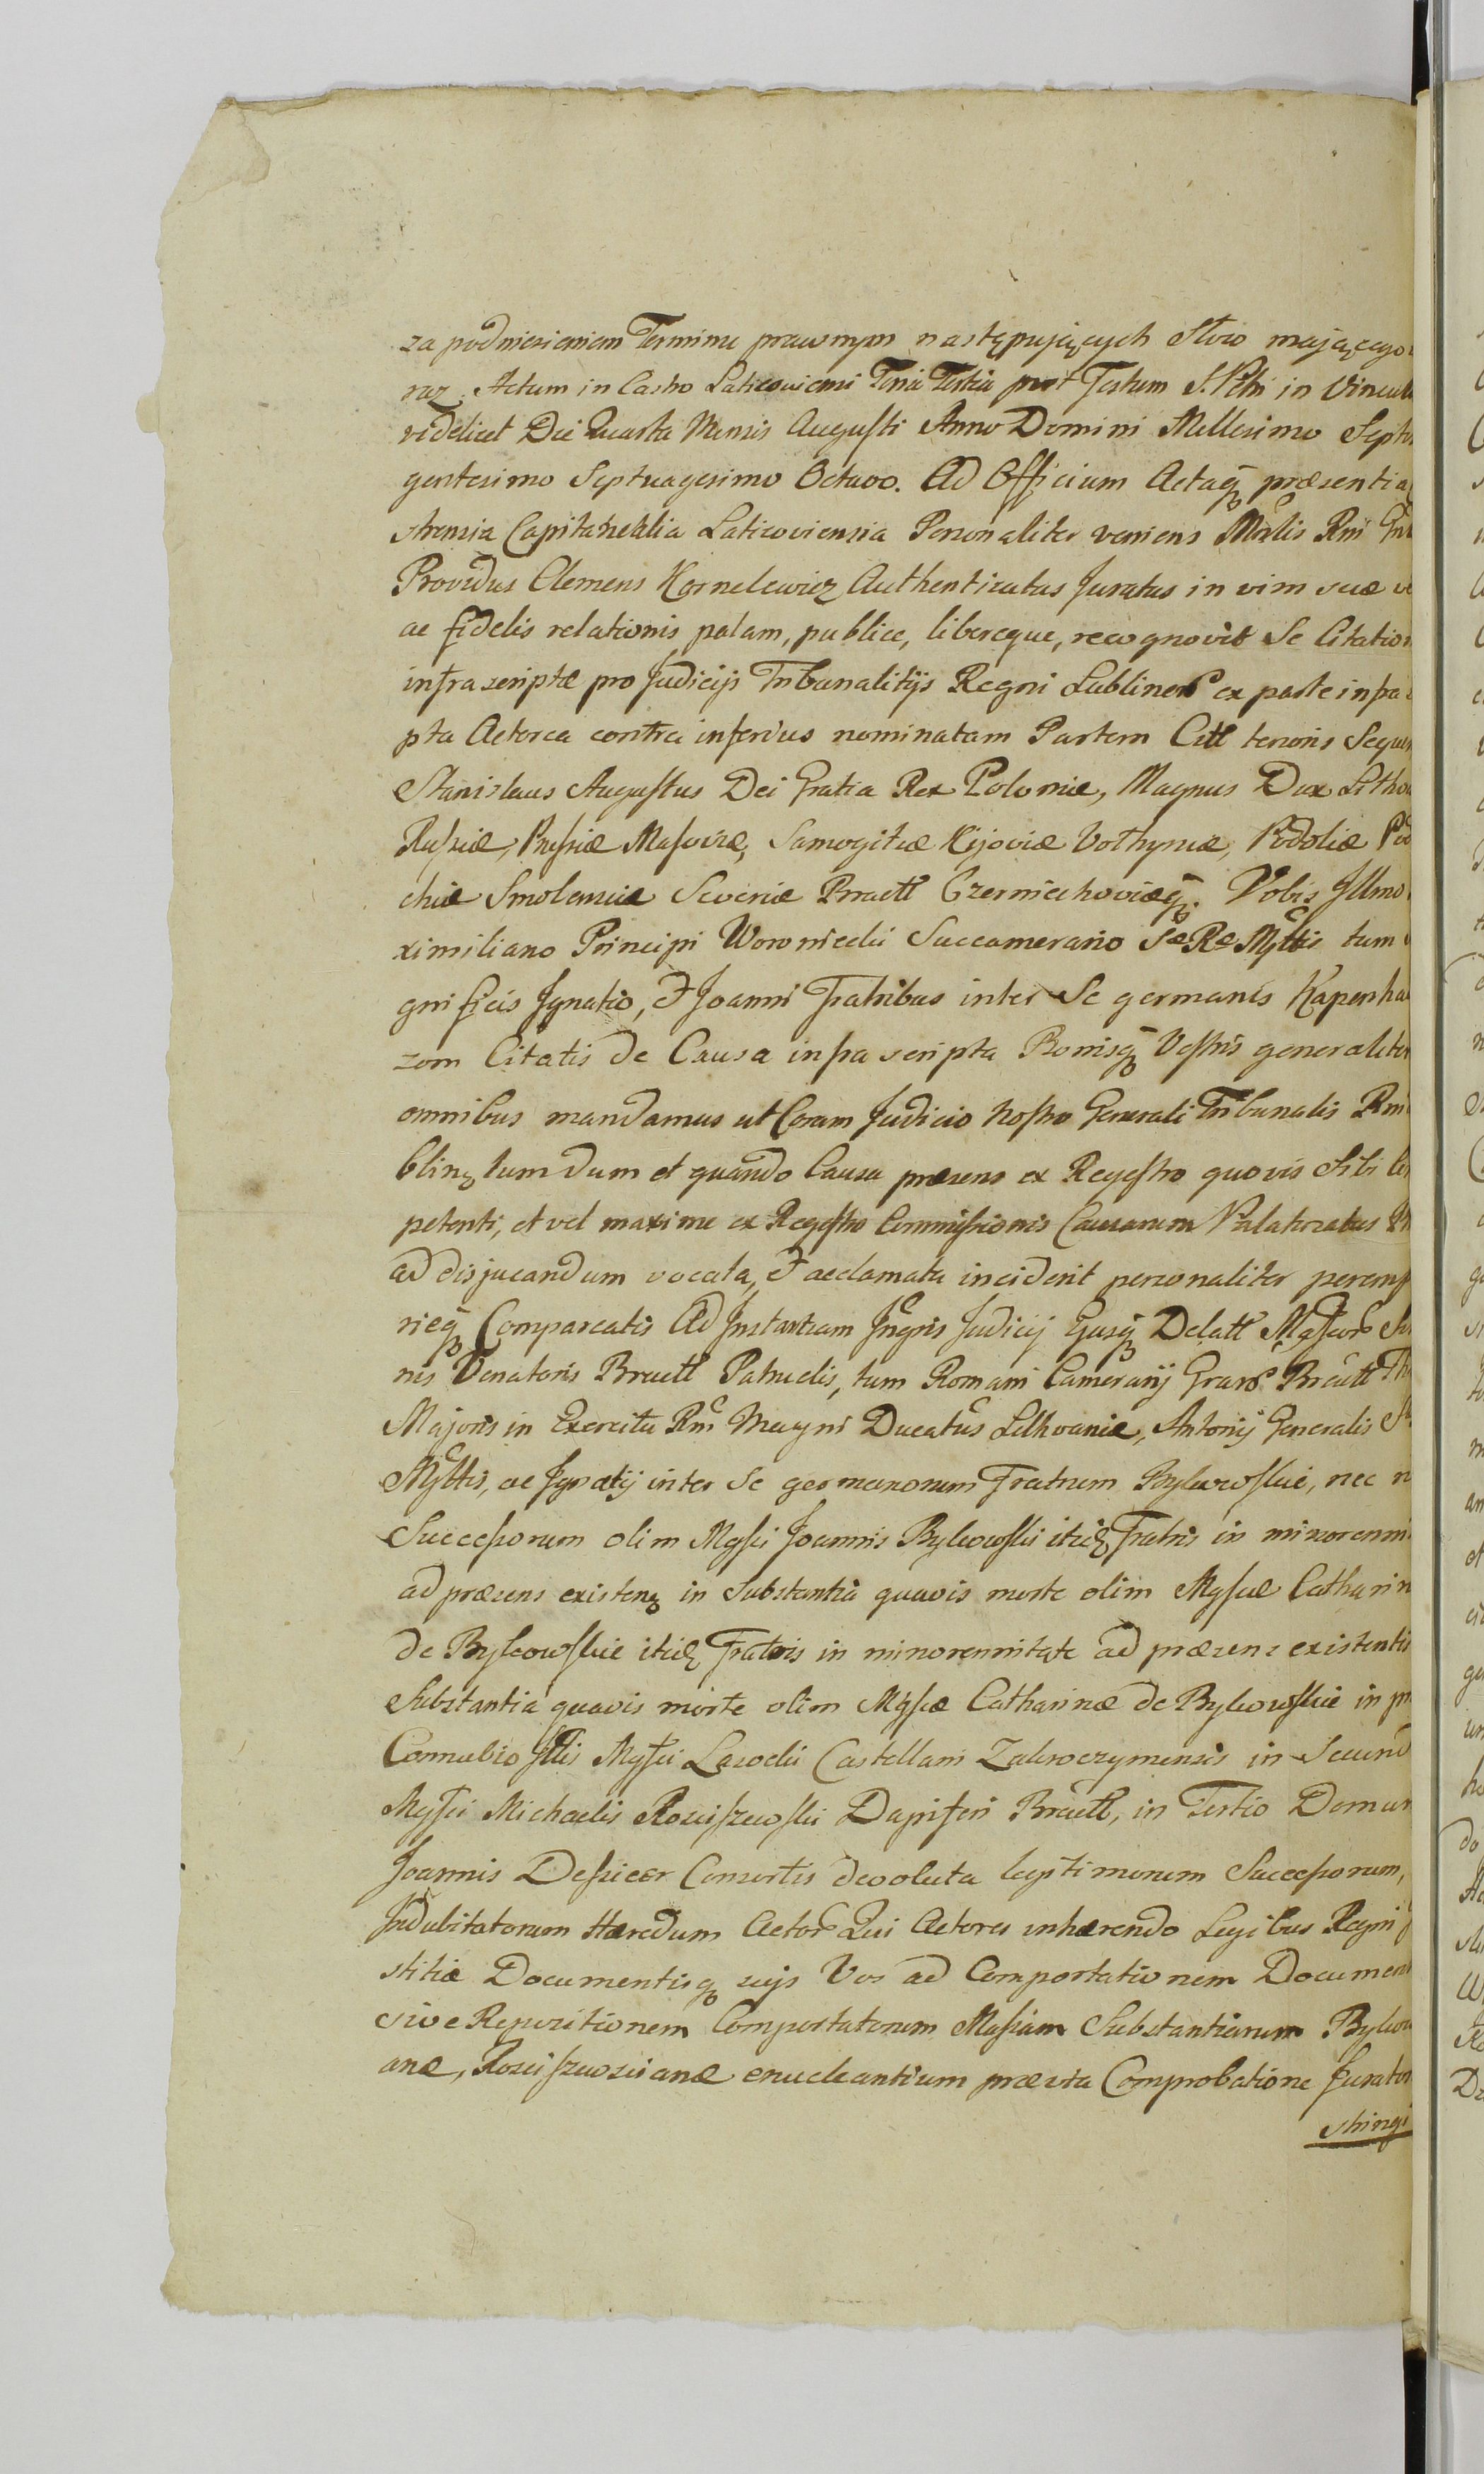 za podniesieniem Terminu prawnym następujących Słow mającego
raz. Actum in Castro Laticoviensi Feria Tertia post Festum S. Petri in Vincul
videlicet Die Quarta Mensis Augusti Anno Domini Millesimo Septin
gentesimo Septuagesimo Octavo. Ad Officium Actaq præsentia
strensia Capitanealia Laticoviensia Personaliter veniens Mnlis Rni Gnl
Providus Clemens Kornelewicz Authenticatus Juratus in vim suæ ve
ac fidelis relationis palam, publice, libereque, recognovit Se Citation
infrascriptæ pro Judicijs Tribunalitijs Regni Lublinen ex parte infra
pta Actorea contra inferius nominatam Partem Citt tenoris Sequen
Stanislaus Augustus Dei Gratia Rex Poloniæ, Magnus Dux Litho
Russiæ, Prussiæ Masoviæ, Samogitiæ Kijoviæ Volhyniæ, Podoliæ Pod
chiæ Smolensciæ Severiæ Bracll Czerniechoviæq. Vobis Illmo
ximiliano Principi Woroniecki Succamerario Sæ Ræ Mttis tum
gnificis Ignatio, & Joanni Fratribus inter Se germanis Kapenha
zom Citatis de Causa infrascripta Bonisq Vestris generaliter
omnibus mandamus ut Coram Judicio Nostro Generali Tribunalis Rni
blinz tum dum et quando Causa præsens ex Regestro quovis Sibi Co
petenti, et vel maxime ex Regestro Commissionis Causarum Palatinatus
ad disjucandum vocata, & acclamata inciderit personaliter peremp
rieq Compareatis Ad Instantiam Ingris Judicij Ejusq Delatt Mgfcor
nis Venatoris Bracll Patruelis, tum Romani Camerarij Gran Bracll
Majoris in Exercitu Rni Magni Ducatus Lithvaniæ, Antonij Generalis
Mttis, ac Ignatij inter Se germanorum Fratrum Bykowskie, nec n
Successorum olim Mgfci Joannis Bykowski itidz Fratris in minorenni
ad præsens existenz in Substantia quavis morte olim Mgfcæ Catharin
de Bykowskie itidz Fratris in minorennitate ad præsens existentis
Substantia quavis morte olim Mgfcæ Catharinæ de Bykowskie in pr
Connubio Illis Mgfci Lasocki Castellani Zakroczymensis in Secund
Mgfci Michaelis Rosciszewski Dapiferi Bracll, in Tertio Domun
Joannis Deszicer Consortis devoluta legitimorum Successorum,
Indubitatorum Hæredum Actor Qui Actores inhærendo Legibus Regni
stitiæ Documentisq suijs Vos ad Comportationem Document
sive Repositionem Comportatorum Massam Substantiarum Bykow
anæ, Rosciszewscianæ enucleantium prævia Comprobatione Jurator
stringi